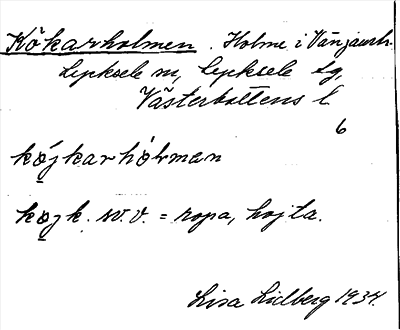 Kökarholmen. Holme i Vänjaurh.
Lycksele sn, Lycksele tg,
Västerbottens l
6
köjkarhólman
köjk. sv. v. = ropa, hojta.
Lisa Lidberg 1934.